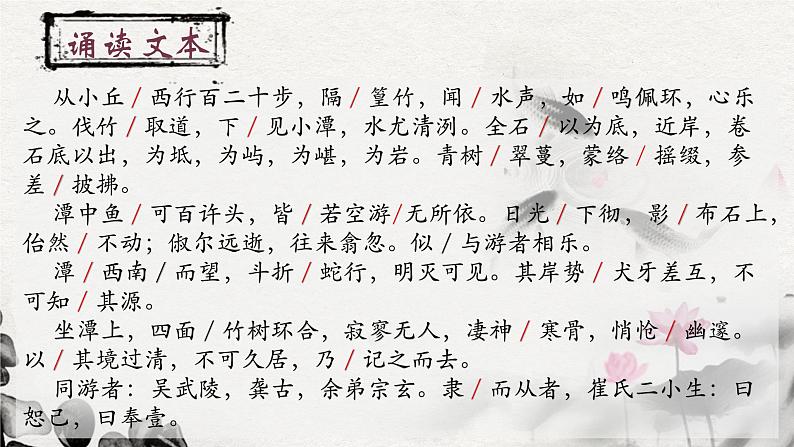 诵读文本
从小丘／西行百二十步，隔／篁竹，闻／水声，如／鸣佩环，心乐
之。伐竹／取道，下／见小潭，水尤清洌。全石／以为底，近岸，卷
石底以出，为坻，为屿，为嵁，为岩。青树／翠蔓，蒙络／摇缀，参
差／披拂。
潭中鱼／可百许头，皆／若空游/无所依。日光／下彻，影／布石上，
佁然／不动；俶尔远逝，往来翕忽。似／与游者相乐。
潭／西南／而望，斗折／蛇行，明灭可见。其岸势／犬牙差互，不
可知／其源。
坐潭上，四面／竹树环合，寂寥无人，凄神／寒骨，悄怆／幽邃。
以／其境过清，不可久居，乃／记之而去。
同游者：吴武陵，龚古，余弟宗玄。隶／而从者，崔氏二小生：曰
恕己，曰奉壹。